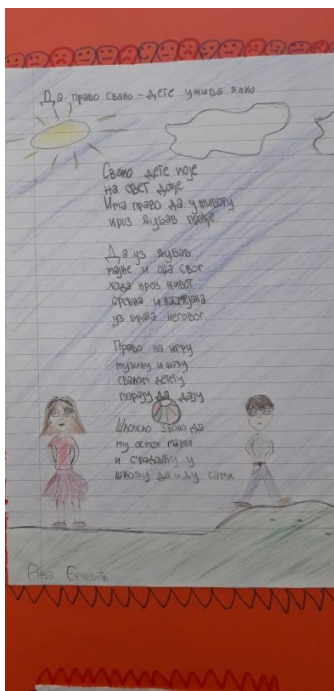 Да право свако - дете ужива лако
Свако дете које
на свет дође
Има право да у животу
кроз љубав пође
Да уз љубав
мајке и оца свог
хода кроз живот
срећна и насмејана
уз брата његовог
Право на игру
музику и шалу
сваком детету
морају да дају
Школско звоно да
му осмех мами
и с радошћу у
школу да иду сами